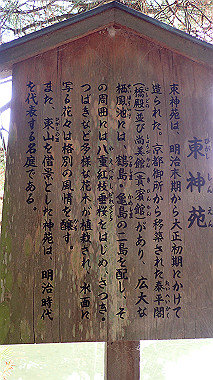 東神苑
東神苑は、明治末期から大正初期にかけて
造られた。京都御所から移築された泰平閣
（橋殿）並び尚美館（貴賓館）があり、広大な
栖鳳池には、鶴島・亀島の二島を配し、そ
の周囲には八重紅枝垂桜をはじめ、さつき・
つばきなど多様な花木が植栽され、水面に
写る花々は格別の風情を醸す。
また、東山を借景とした神苑は、明治時代
を代表する名庭である。